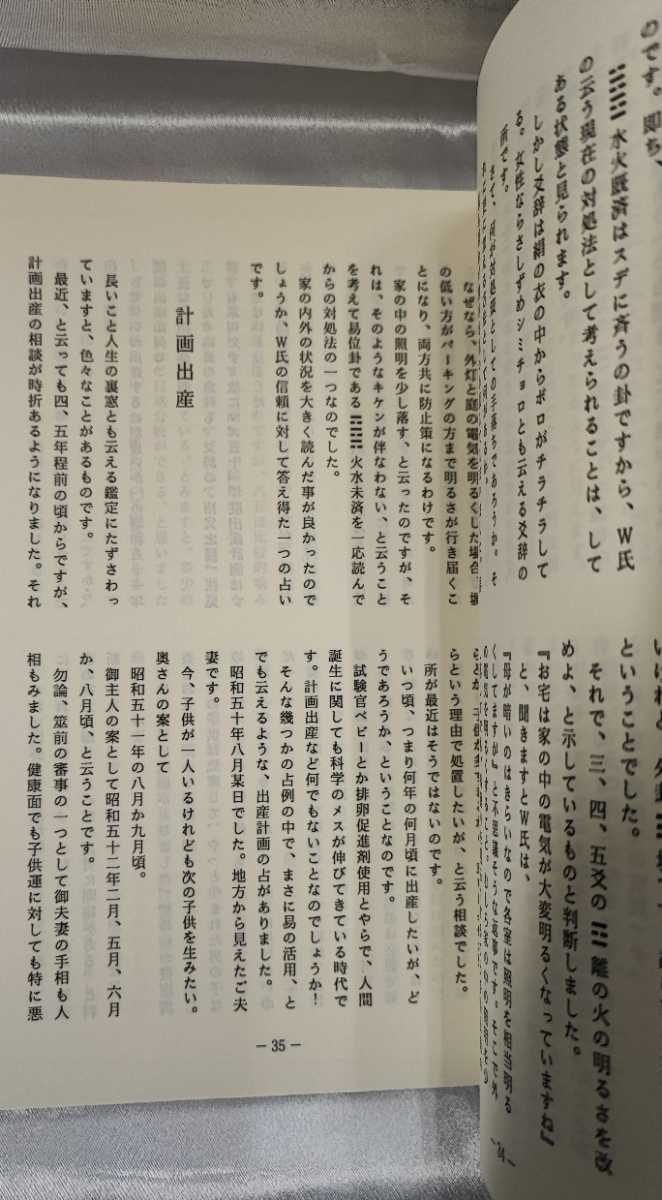 のです。即ち、
水火既済はスデに斉うの卦ですから、W氏
の云う現在の対処法として考えられることは、して
ある状態と見られます。
しかし爻辞は絹の衣の中からボロがチラチラして
る。女性ならさしずめシミチョロとも云える爻辞の
所です。
さて、何が対処法としての手落ちであろうか。そ
いけれど、外卦
ということでした。
それで、三、四、五爻の ☲ 離の火の明るさを改
めよ、と示しているものと判断しました。
『お宅は家の中の電気が大変明るくなっていますね』
と、聞きますとW氏は、
『母が暗いのはきらいなので各室は照明を相当明る
くしてますが』と不思議そうな返事です。そこで外
の電気を明るくすること、むしろ家の中の照明を少
－34－
なぜなら、外灯と庭の電気を明るくした場合、塀
の低い方がパーキングの方まで明るさが行き届くこ
とになり、両方共に防止策になるわけです。
家の中の照明を少し落す、と云ったのですが、そ
れは、そのようなキケンが伴なわない、と云うこと
を考えて易位卦である 火水未済を一応読んで
からの対処法の一つなのでした。
家の内外の状況を大きく読んだ事が良かったので
しょうか、W氏の信頼に対して答え得た一つの占い
です。
計画出産
長いこと人生の裏窓とも云える鑑定にたずさわっ
ていますと、色々なことがあるものです。
最近、と云っても四、五年程前の頃からですが、
計画出産の相談が時折あるようになりました。それ
らという理由で処置したいが、と云う相談でした。
所が最近はそうではないのです。
いつ頃、つまり何年の何月頃に出産したいが、ど
うであろうか、ということなのです。
試験官ベビーとか排卵促進剤使用とやらで、人間
誕生に関しても科学のメスが伸びてきている時代で
す。計画出産など何でもないことなのでしょうか！
そんな幾つかの占例の中で、まさに易の活用、と
でも云えるような、出産計画の占がありました。
昭和五十年八月某日でした。地方から見えたご夫
妻です。
今、子供が一人いるけれども次の子供を生みたい。
奥さんの案として
昭和五十一年の八月か九月頃。
御主人の案として昭和五十二年二月、五月、六月
か、八月頃、と云うことです。
勿論、筮前の審事の一つとして御夫妻の手相も人
相もみました。健康面でも子供運に対しても特に悪
－35－